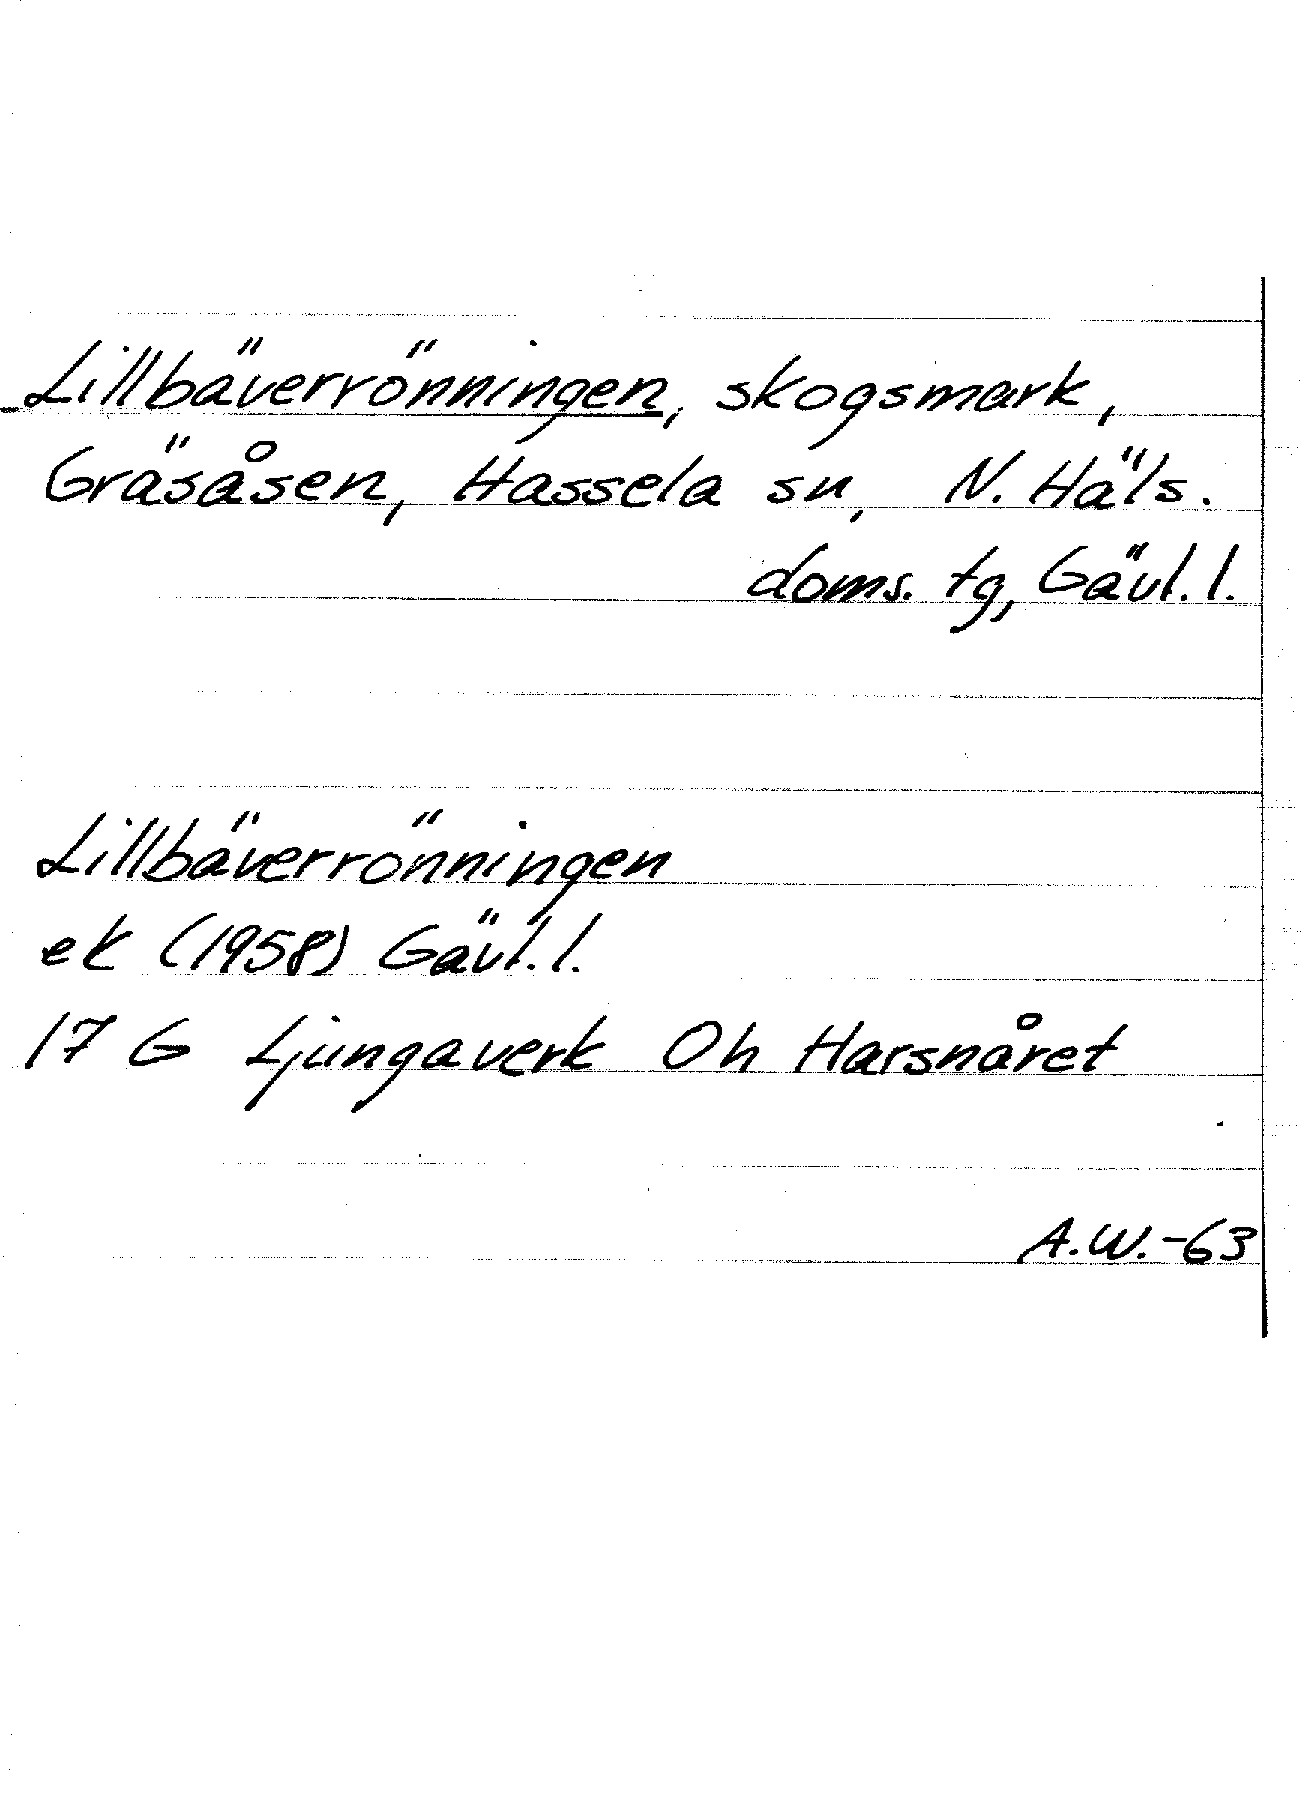 Lillbäverrönningen, skogsmark,
Gräsåsen, Hassela sn, N. Häls.
doms. tg, Gävl. l.
Lillbäverrönningen
ek (1958) Gävl. l.
17 G Ljungaverk 0h Harsnåret
A.W.-63